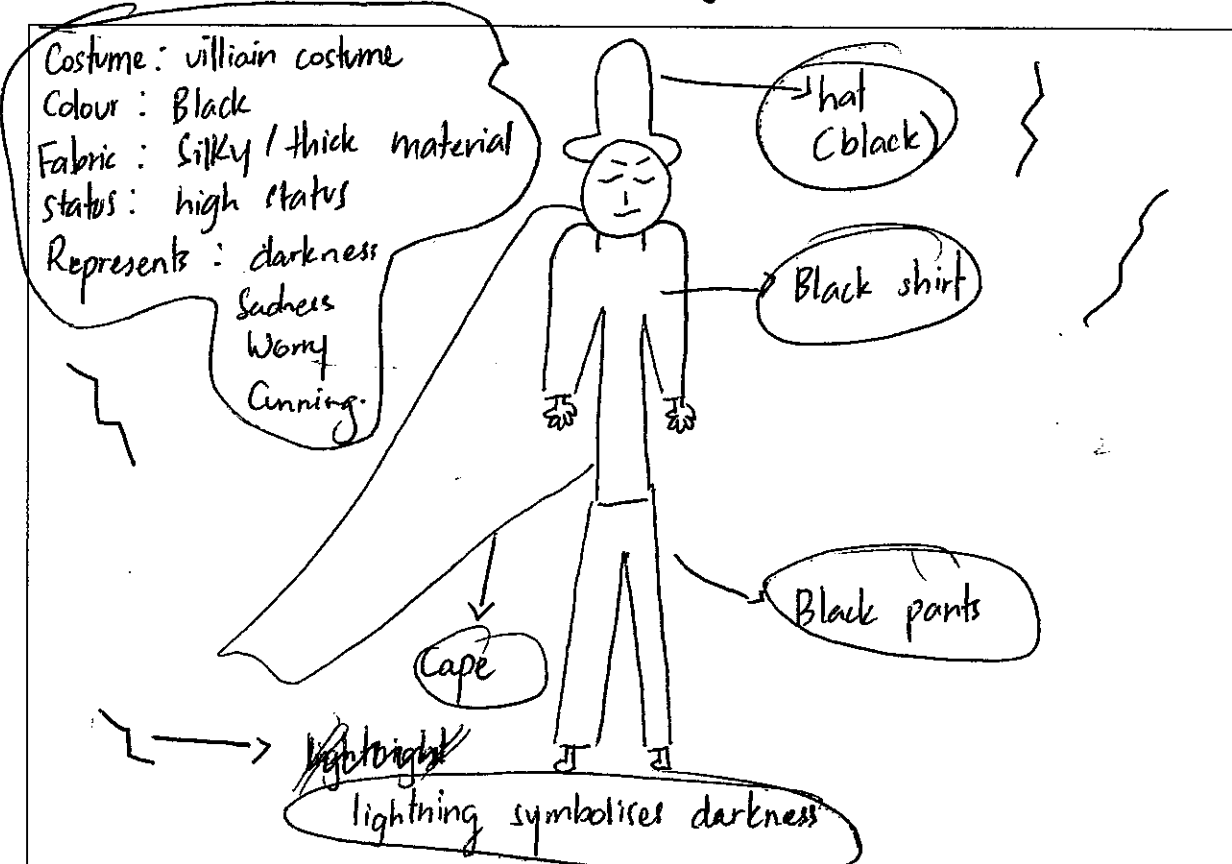 Costume: villiain costume
Colour: Black
Fabric: Silky / thick material
status: high status
Represents: darkness
Sadness
Worry
Cunning.
hat
(black)
Black shirt
Black pants
Cape
lightning symbolises darkness